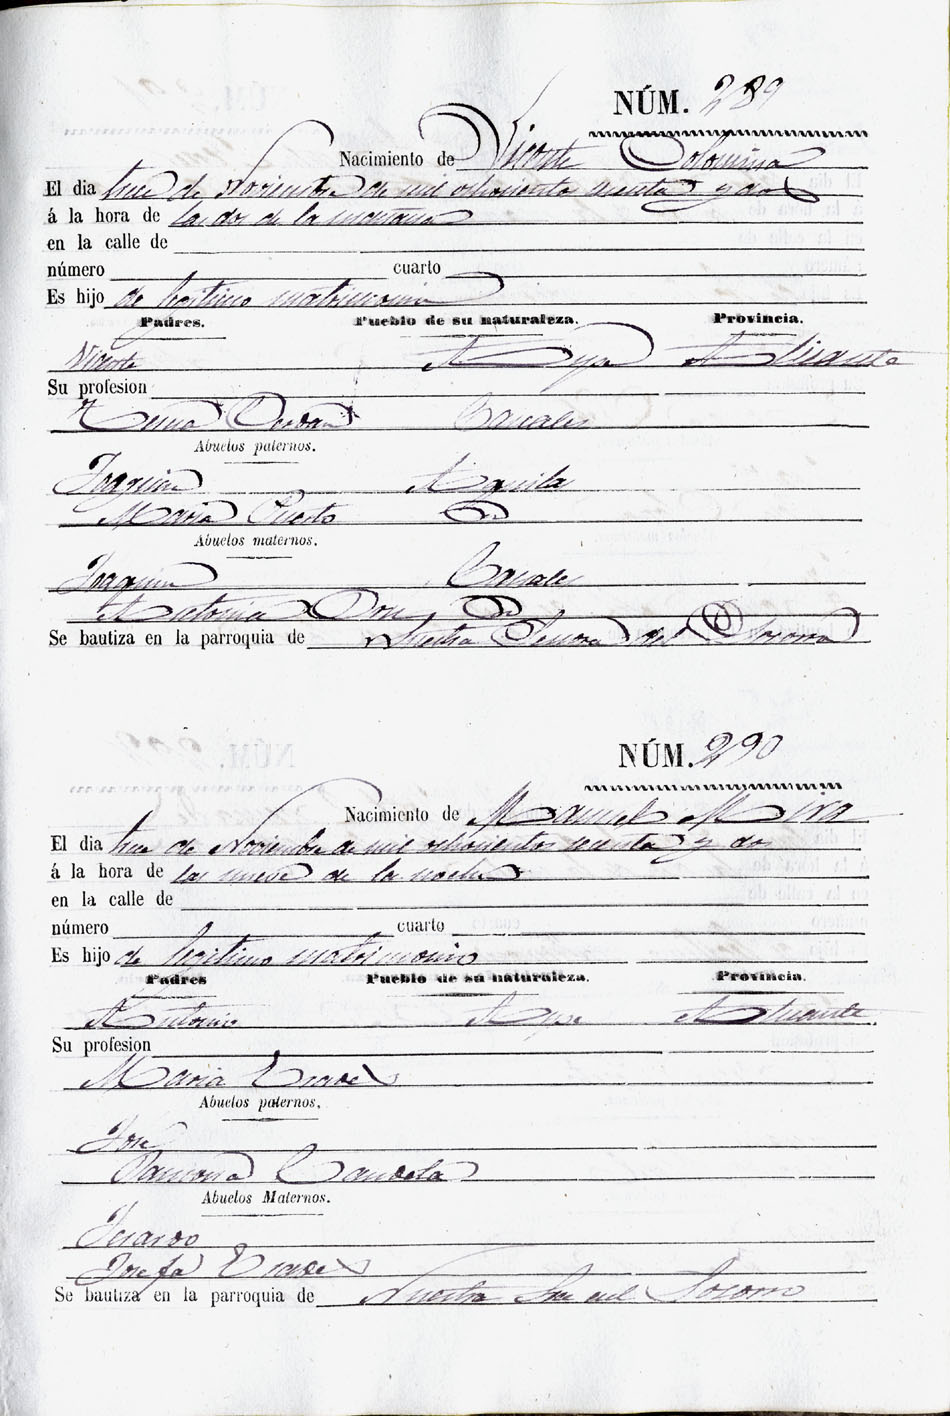 NÚM. 289
Nacimiento de Vicente Colomina
El dia trece de Noviembre de mil ochocientos sesenta y dos
á la hora de las dos de la mañana
en la calle de
número cuarto
Es hijo de legitimo matrimonio
Padres. Pueblo de su naturaleza. Provincia.
Vicente Aspe Alicante
Su profesion
Teresa Cerdan
Abuelos paternos.
Joaquin
Maria Puerto
Abuelos maternos.
Joaquin
Antonia
Se bautiza en la parroquia de Nuestra Señora del Socorro
NÚM. 290
Nacimiento de Manuel Mira
El dia trece de Noviembre de mil ochocientos sesenta y dos
á la hora de las nueve de la noche
en la calle de
número cuarto
Es hijo de legitimo matrimonio
Padres Pueblo de su naturaleza. Provincia.
Antonio Aspe Alicante
Su profesion
Maria
Abuelos paternos.
José
Ramona Candela
Abuelos Maternos.
Josefa
Se bautiza en la parroquia de Nuestra Sra del Socorro